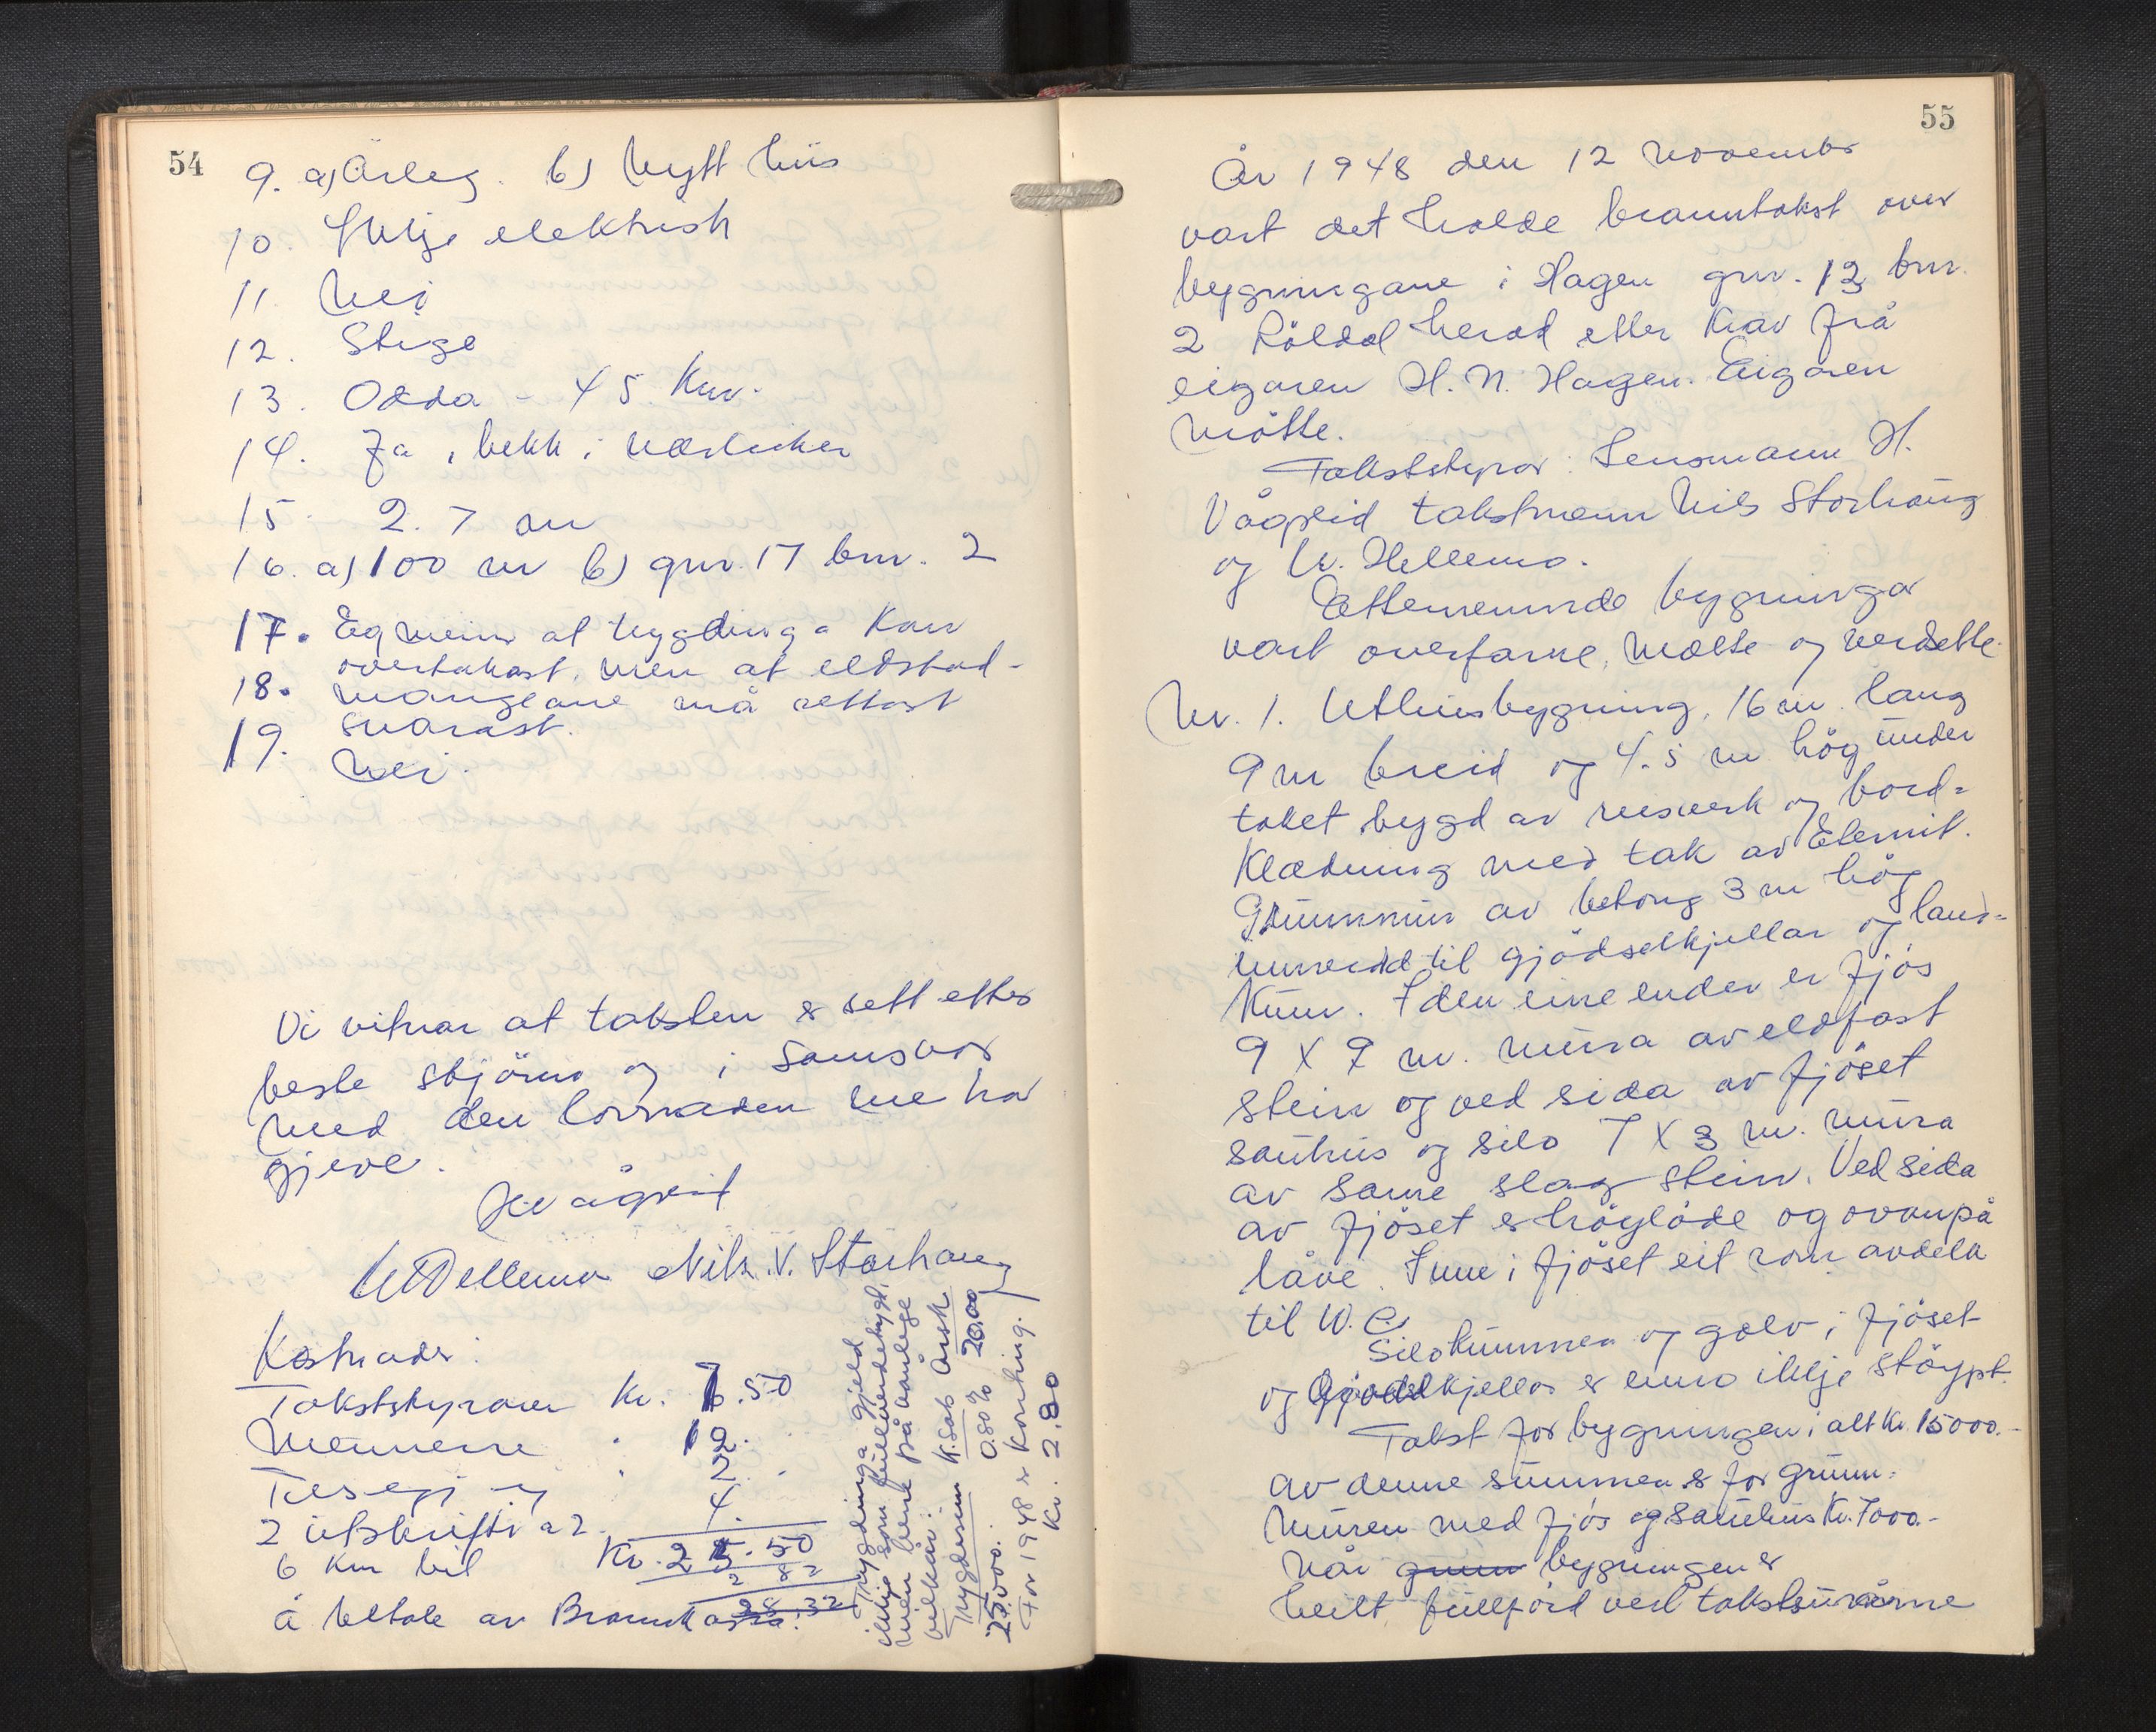 54
9. a) Årleg. b) Nytt hus
10. Ikkje elektrisk
11. Nei
12. Stige
13. Odda - 45 Km.
14. Ja, bekk i nærleiken
15. 2.7 m
16. a) 100 m b) gnr. 17 bnr. 2
17. Eg meiner at trygdinga kan
overtakast, men at eldstad-
18. manglane må rettast
snarast.
19. Nei.
Vi vitnar at taksten er sett etter
beste skjönn og i samsvar
med den lovnaden me har
gjeve.
H. Vågreid
Hellemo Nils V. Storhaug
Kostnader:
Takststyraren Kr. 7.50
Mennene " 12.
Tilsegjing " 2. "
2 utskrifter a 2. 4.
Kr. 25.50
6 km bil 2 82
å betale av Brannkassa: 28.32
Trygdinga gjeld
ikkje som fullverdetrygd,
men berre på vanlege
vilkår:
Trygdesum K.Sats Årsk
25.000. 0.80% 20.00
For 1948 er Konting.
Kr. 2.80
55
År 1948 den 12 november
vart det halde branntakst over
bygningane i Hagen gnr. 13 bnr.
2 Röldal herad etter krav frå
eigaren H. N. Hagen. Eigaren
mötte.
Takststyrar: Lensmann H.
Vågreid takstmenn Nils Storhaug
og Hellemo.
Ettemennde bygningar
vart overfarne, mælte og verdsette.
Nr. 1. Uthusbygning, 16 m. lang
9 m breid og 4.5 m hög under
taket, bygd av reisverk og bord-
klædning med tak av Eternit.
Grunnmur av betong 3 m hög
innreidd til gjödselkjellar og land-
kum. I den eine enden er fjös
9 X 7 m. mura av eldfast
stein og ved sida av fjöset
sauhus og silo 7 X 3 m. mura
av same slag stein. Ved sida
av fjöset er höylöde og ovanpå
låve. Inne i fjöset eit rom avdelt
til W.C.
Silokummen og golv i fjöset
og Gjödselkjellar er enno ikkje stöypt.
Takst for bygningen i alt Kr. 15000.-
Av denne summen er for grunn-
muren med fjös og sauhus Kr. 7000.-
Når grunn bygningen er
heilt fullförd vert takstsummane